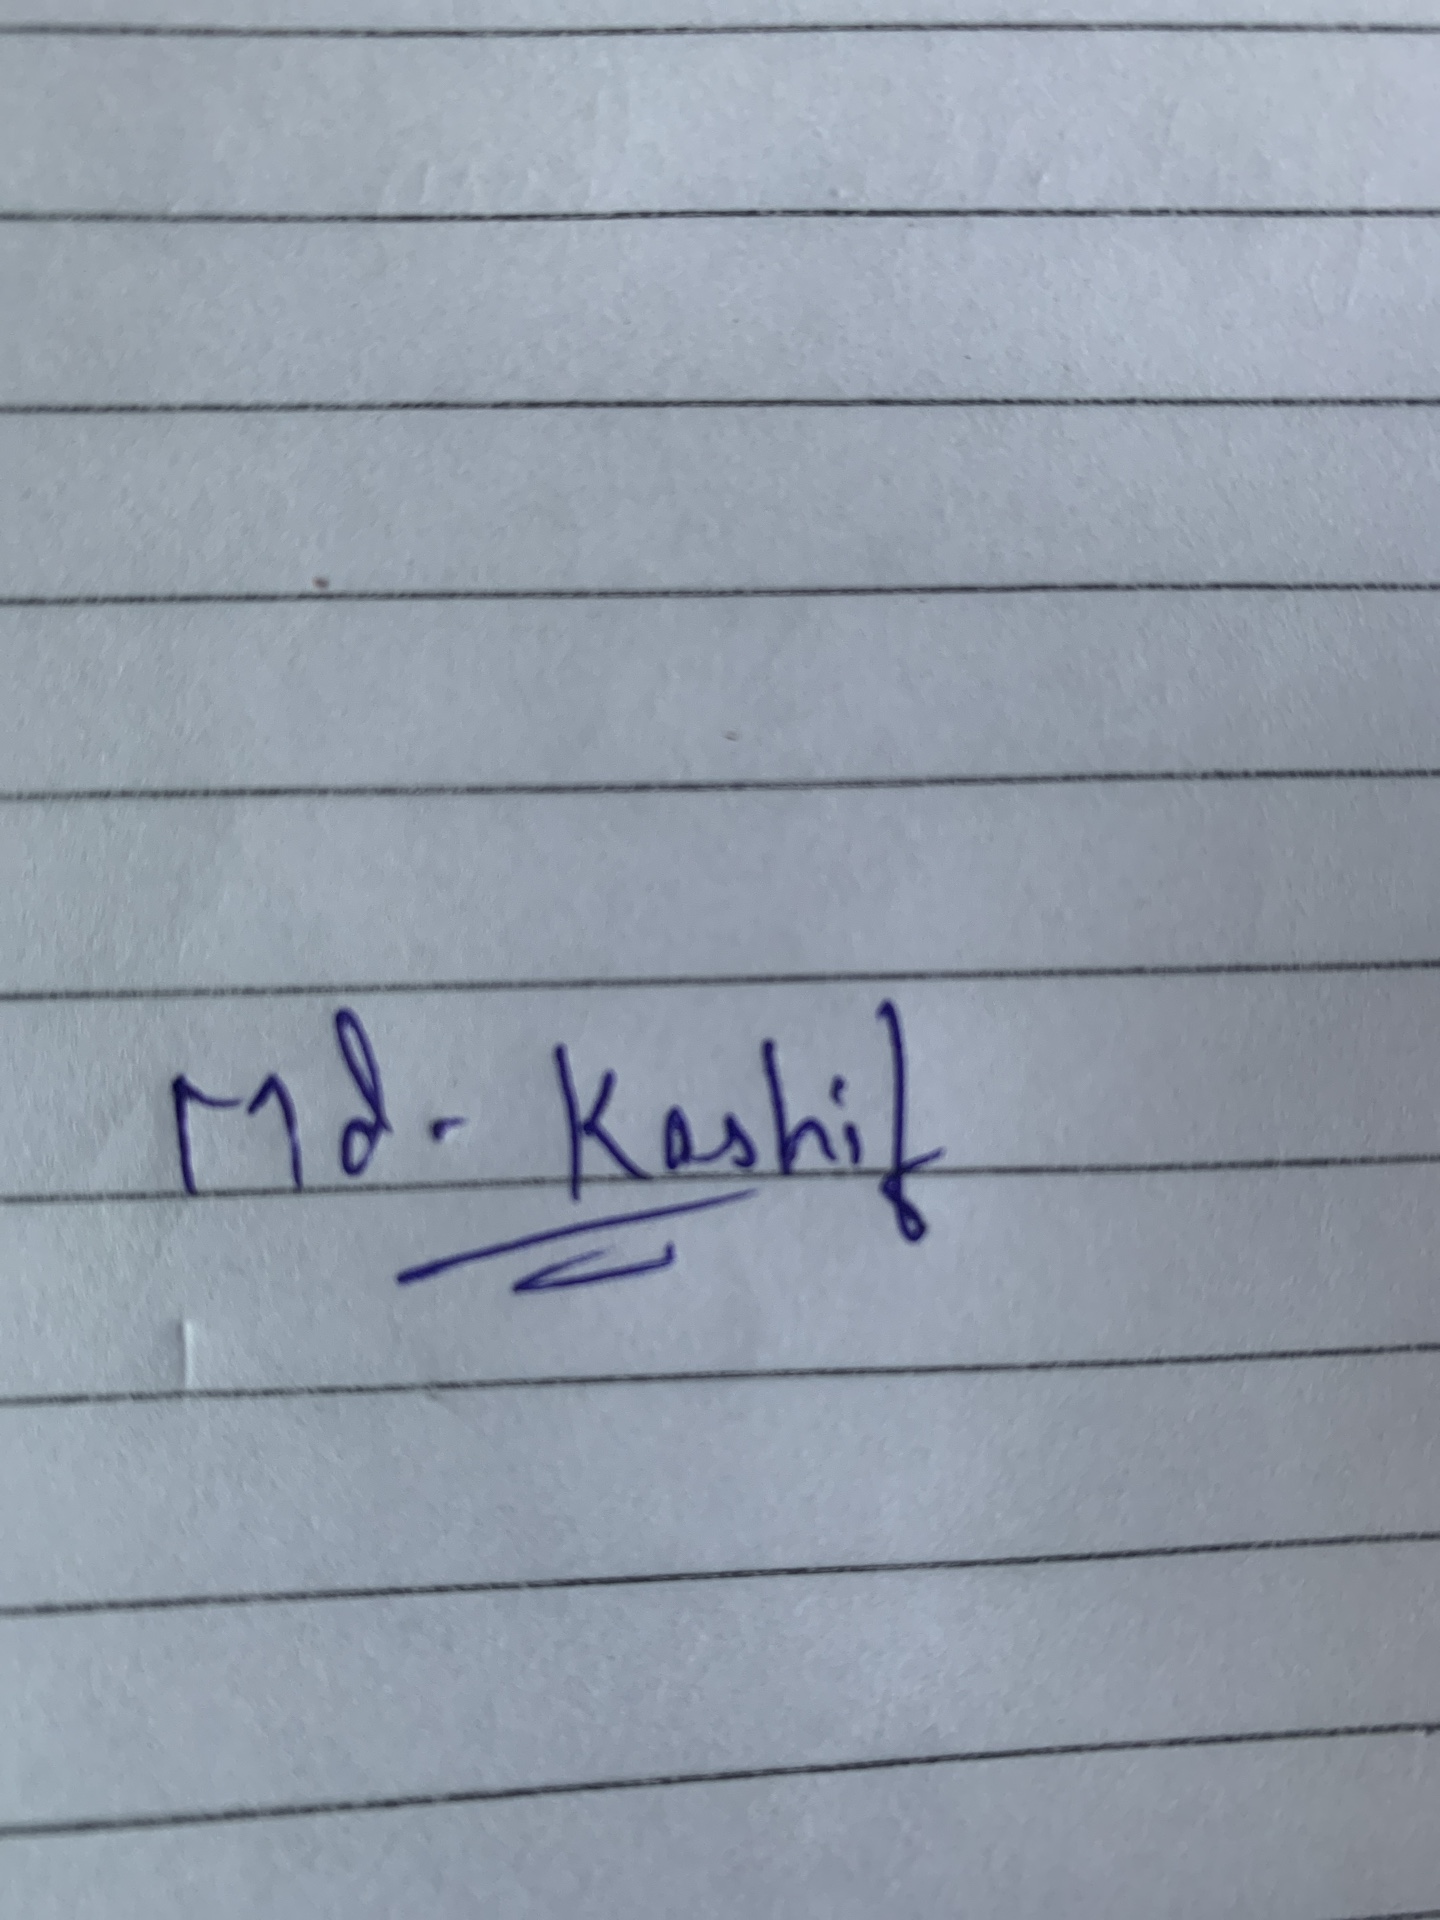 Md. Kashif